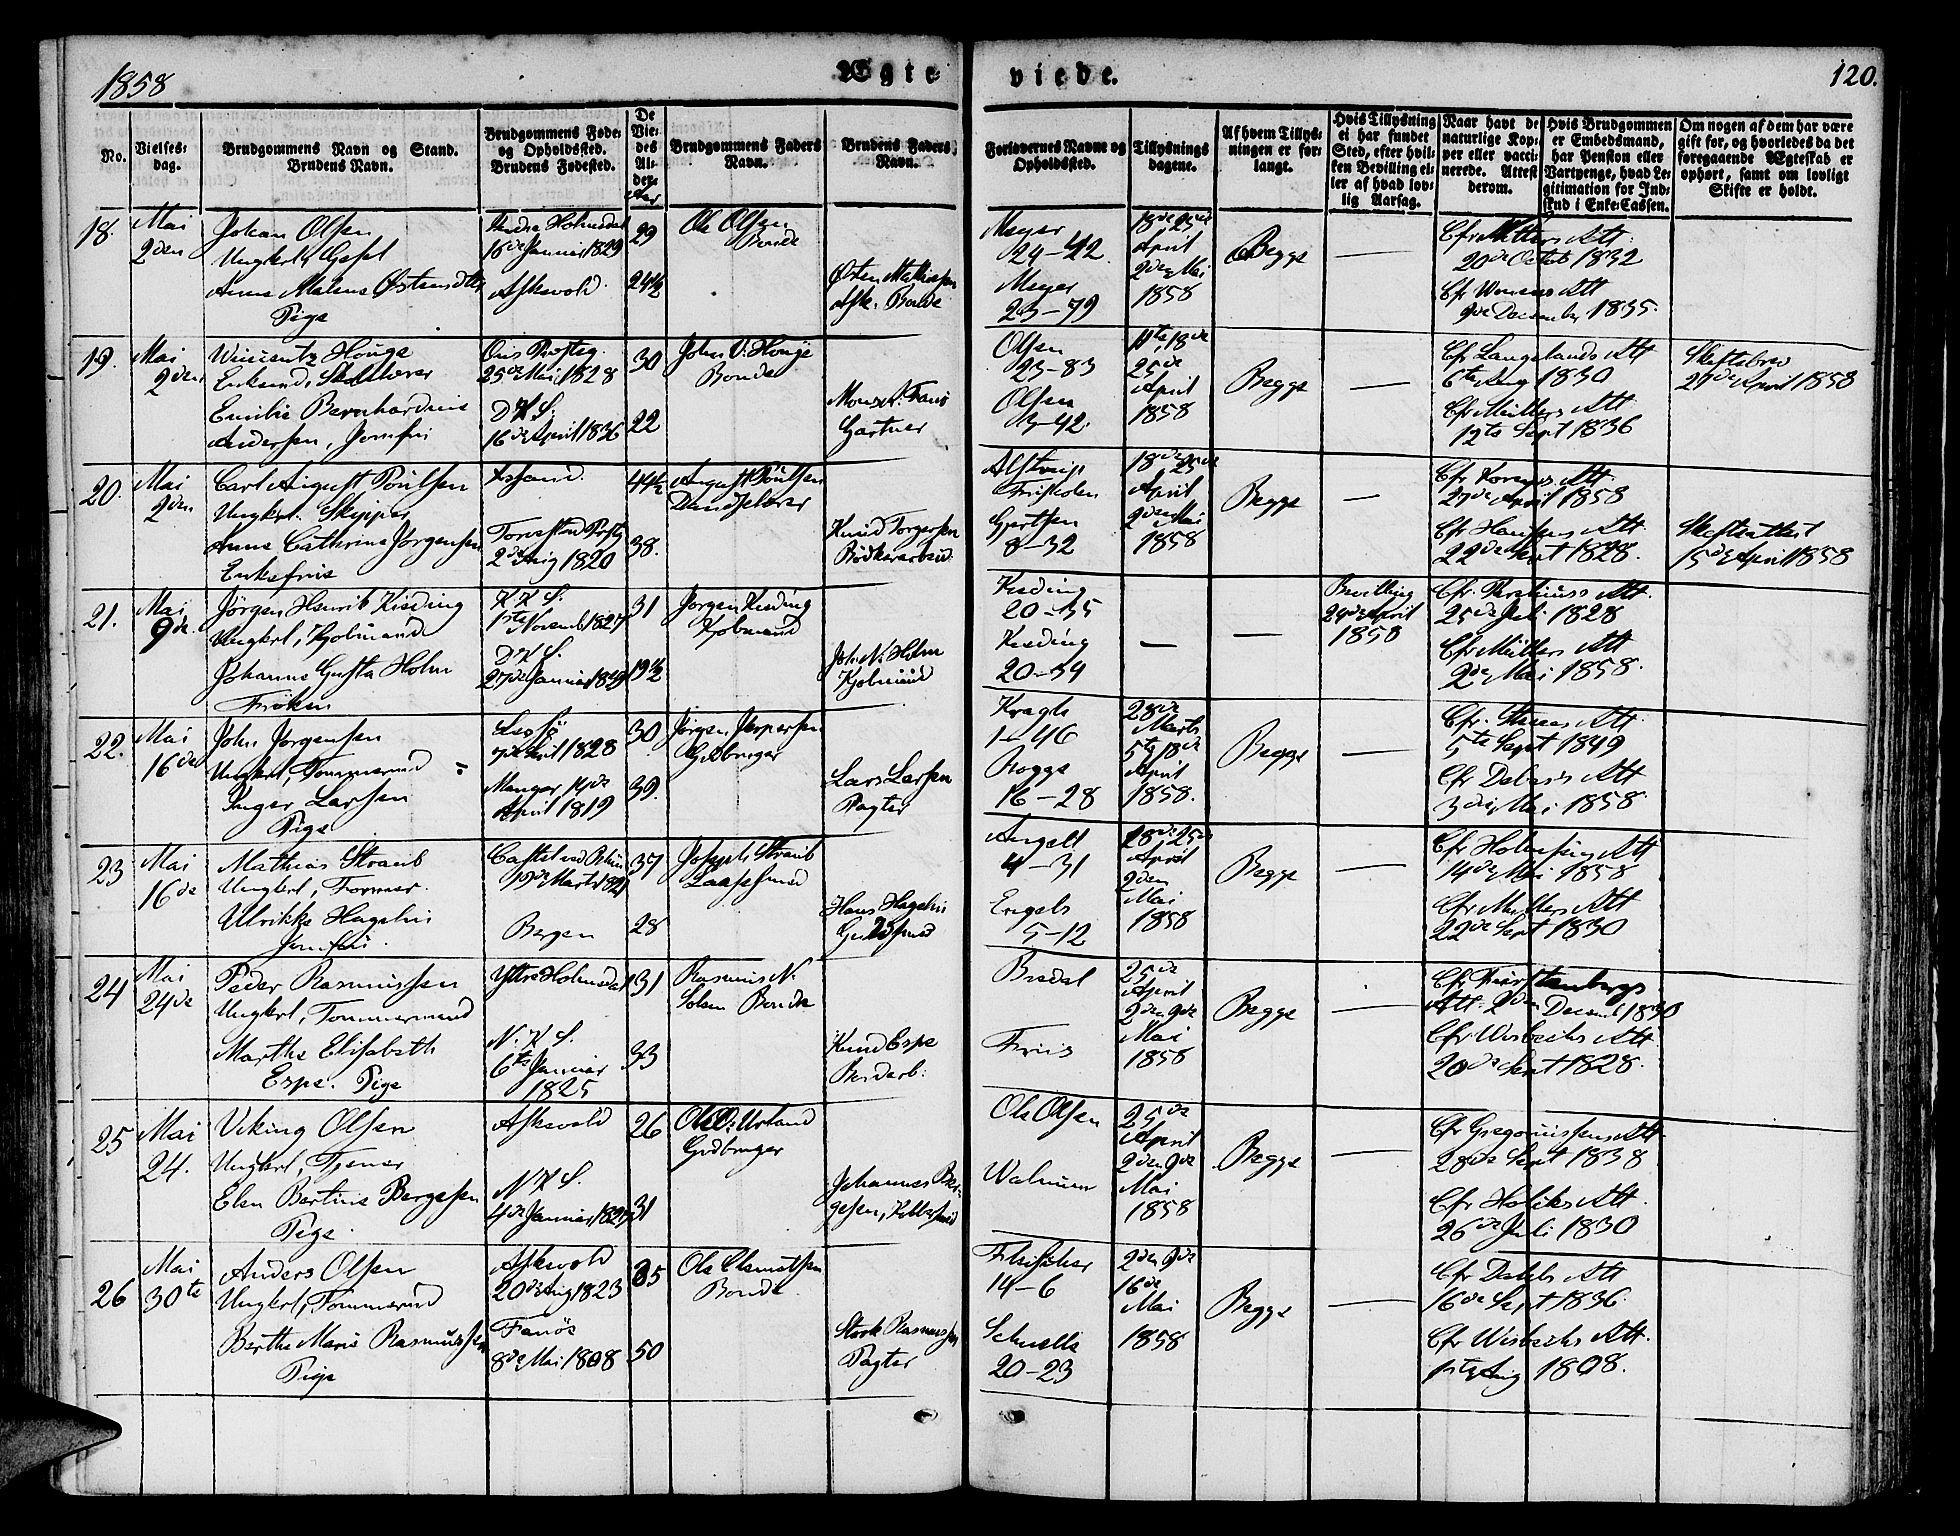 1858
Ægte
viede.
120.
No.
Vielses-
dag.
Brudgommens Navn og Stand.
Brudens Navn.
Brudgommens Føde-
og Opholdssted.
Brudens Fødested.
De
Vie-
des
Al-
der.
Aar
Brudgommens Faders
Navn.
Brudens Faders
Navn.
Forlovernes Navne og
Opholdssted.
Tillysnings
dagene.
Af hvem Tillys-
ningen er for-
langt.
Hvis Tillysning
ei har fundet
Sted, efter hvil-
ken Bevilling el-
ler af hvad lov-
lig Aarsag.
Naar havt de
naturlige Kop-
per eller vacci-
nerede. Attest
derom.
Hvis Brudgommen
er Embedsmand,
har Pension eller
Vartpenge, hvad Le-
gitimation for Ind-
skud i Enke-Cassen.
Om nogen af dem har være
gift for, og hvorledes da det
foregaaende Ægteskab er
ophørt, samt om lovligt
Skifte er holdt.
18. Mai 2den
Johan Olsen
Ungkarl,
Anne Malene
Pige
Holmedal
16de Januar 1829
Askevold
29
24½
Ole Olsen
Bonde
Østen Mathisen
Ask. Bonde
Meyer
24-42.
Meyer
23-79
18de 25de
April
2den Mai
1858
Begge
—
Cfr Müllers Att.
20de Octob 1832
Cfr Att
9de December 1835.
19. Mai 2den
Houge
Enkemd,
Emilie Bernhardine
Andersen, Jomfru
25de Mai 1828
D. K. S.
16de April 1836
30
22
John V. Houge
Bonde
Gartner
Olsen
23-83
Olsen
3-42.
11te, 18de
25de
April
1858
Begge
—
Cfr Langelands Att
6te Aug 1830
Cfr Müllers Att
12te Sept 1836
Skiftebrev
27de April 1858
20. Mai 2den
Carl August Poulsen
Ungkrl. Skipper
Anne Cathrine Jørgensen
Enkefrue
2de Aug 1820
44½
38.
August Poulsen
Dandselærer
Knud Torgersen
Bødkerarbeid.
Alstrup
Friskolen
Gertsen
8-32
18de 25de
April
2den Mai
1858
Begge
—
Cfr Att
27de April 1858
Cfr Hansens Att
22de Sept 1828.
Skifteattest
15de April 1858
21. Mai 9de.
Jørgen Henrik Kisding
Ungkrl, Kjøbmand
Johanne Gusta Holm
Frøken
K. K. S.
1ste Novemb 1827
D. K. S.
27de Januar 1839
31
19½
Jørgen Kisding
Kjøbmand
Joh. N. Holm
Kjøbmand
Kisding
20-35
Kisding
20-34
—
—
Bevilling
24de April
1858
Cfr. Att.
25de Juli 1828
Cfr Müllers Att
2de Mai 1858.
22. Mai 16de
John Jørgensen
Ungkrl, Tømmermd
Inger Larsen
Pige
April 1828
Manger, 14de
April 1819
30
39.
Jørgen Jespersen
Gadbruger
Lars Larsen
Pagter
Kragh
1-46
Rogge
16-28
28de
Marts
5te 18de
April
1858.
Begge
—
Cfr. Att
5te Sept 1849
Cfr Att
3die Mai 1858
23 Mai 16de
Mathias Straub
Ungkrl, Former.
Ulrikke Hagelin
Jomfru.
19de Marts 1821
Bergen
37
28
Joseph Straub
Laasesmed
Hans Hagelin
Guldsmed
Angell
4-31
Engels
5-12
18de 25de
April
2den
Mai
1858
Begge
—
Cfr Att
14de Mai 1858
Cfr Müllers Att
22de Sept 1830
24 Mai 24de
Peder Rasmussen
Ungkrl, Tømmermand
Marthe Elisabeth
Espe. Pige
Yttre Holmedal
N. K. S.
6te Januar
1825
31
33
Rasmus N.
Solem Bonde
Knud Espe
Bredal
Friis
25de
April
2den 9de
Mai
1858
Begge
—
Cfr
Att. 2den Decemb 1830
Cfr Wisbechs Att
20de Sept 1828.
25 Mai 24.
Viking Olsen
Ungkrl, Tjener
Elen Bertine Børgesen
Pige
Askevold
N. K. S.
4de Januar 1827
26
31
Ole O. Urland
Gdbruger
Johannes Bør-
gesen, Kobbersmed
Ole Olsen
Walnum
25de
April
2den 9de
Mai
1858
Begge
—
Cfr Gregoriussens Att.
28de Sept 1838
Cfr Att.
26de Juli 1830
26 Mai 30te
Anders Olsen
Ungkrl, Tømmermd
Berthe Marie Rasmussen
Pige
Askevold
20de Aug 1823
Fanöe
8de Mai 1808
35
50
Ole
Bonde
Rasmussen
Pagter
14-6
Schnelle
20-23
2den 9de
16de
Mai
1858
Begge
—
Cfr Att
16de Sept 1836.
Cfr Wisbechs Att.
1ste Aug 1808.